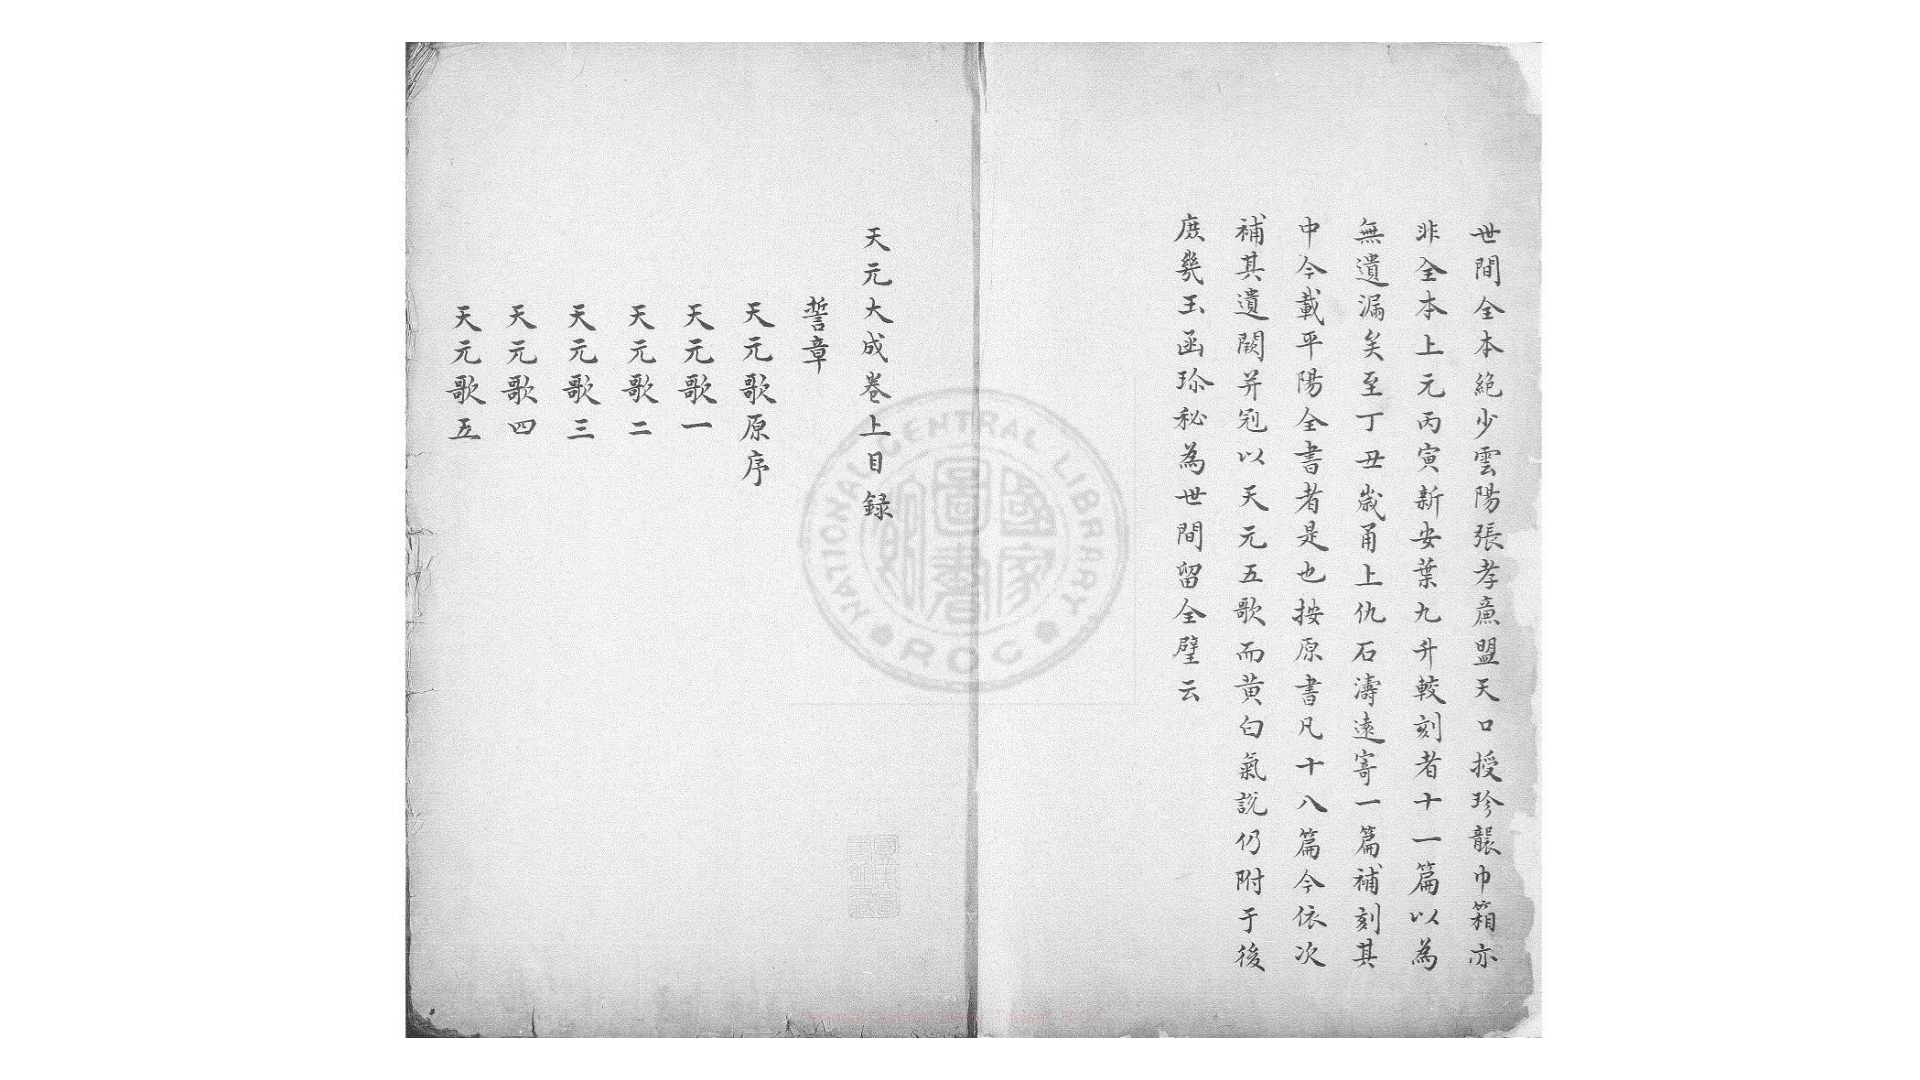 世間全本絕少雲陽張孝廉盟天口授珍襲巾箱亦
非全本上元丙寅新安葉九升較刻者十一篇以為
無遺漏矣至丁丑歲甬上仇石濤遠寄一篇補刻其
中今載平陽全書者是也按原書凡十八篇今依次
補其遺闕并冠以天元五歌而黃白氣說仍附于後
庶幾玉函珍秘為世間留全璧云
天元大成卷上目録
誓章
天元歌原序
天元歌一
天元歌二
天元歌三
天元歌四
天元歌五
NATIONAL CENTRAL LIBRARY
ROC
國家圖書館